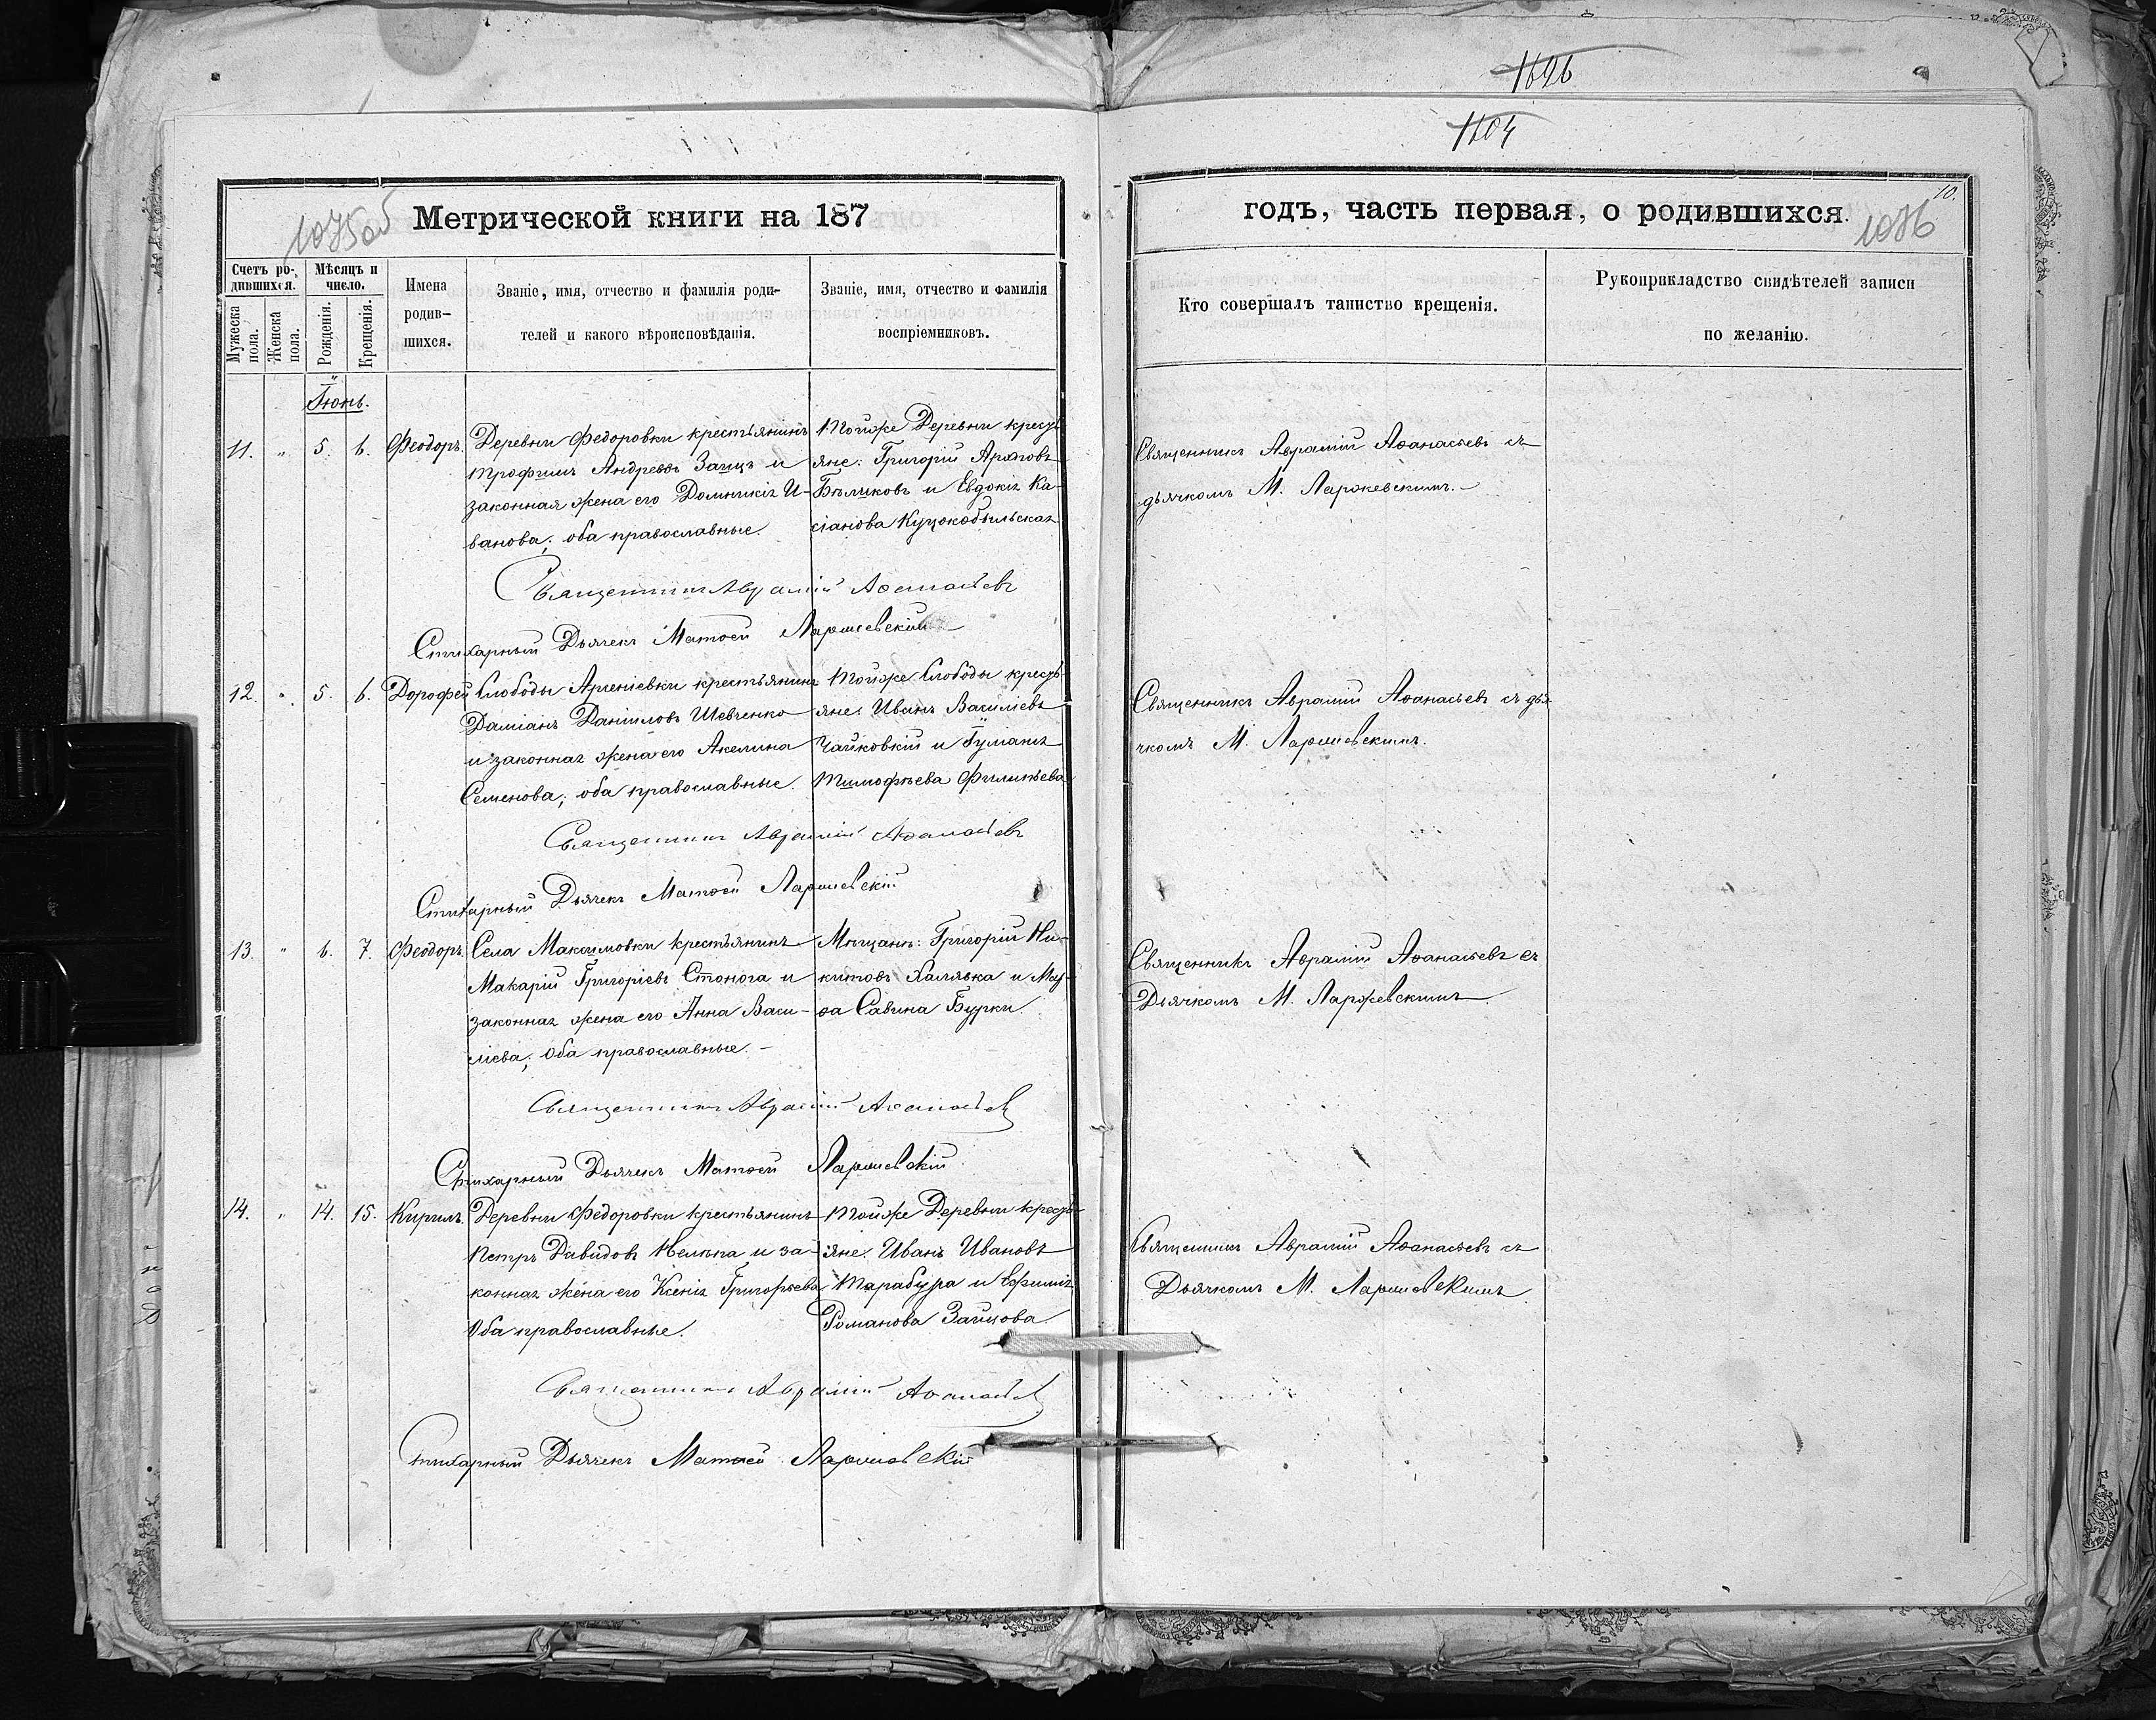 1626
1104
1075об
Метрической книги на 187
Счетъ ро-
дившихся.
Мѣсяцъ и
число.
Мужеска
пола.
Женска
пола.
Рожденія.
Крещенія.
Имена
родив-
шихся.
Званіе, имя, отчество и фамилія роди-
телей и какого вѣроисповѣданія.
Званіе, имя, отчество и фамилія
воспріемниковъ.
Іюнь.
11. " 5. 6. Феодоръ.
Деревни Федоровки крестьянинъ
Трофимъ Андреевъ Заицъ и
законная жена его Домникія И-
ванова; оба православные.
Тойже Деревни кресть
яне: Григорій
Бѣликовъ и Евдокія Ка-
сіанова Куцокобыльская
Священникъ Авраміи Аѳанасьевъ
Стихарный Дьячекъ Матѳей Ляршевскій
12. " 5. 6. Дорофей
Слободы Арсеніевки крестьянинъ
Даміанъ Даніиловъ Шевченко
и законная жена его Акелина
Семенова; оба православные.
Тойже Слободы кресть-
яне: Иванъ Василіевъ
Чайковкій и Іуліанія
Тимофѣева Филипьева
Священникъ Авраміи Аѳанасьевъ
Стихарный Дьячекъ Матѳей Ляршевскій
13. " 6. 7. Феодоръ.
Села Максимовки крестьянинъ
Макарій Григоріевъ Стонога и
законная жена его Анна Васи-
ліева; Оба православные. -
Мѣщане: Григорій Ни-
китовъ Халявка и Мар-
фа Савина Бурки.
Священникъ Авраміи Аѳанасьевъ
Стихарный Дьячекъ Матѳей Ляршевскій
14. " 14. 15. Кирилъ.
Деревни Федоровки крестьянинъ
Петръ Давидовъ и за-
конная жена его Ксенія Григорьева
Оба православные.
Тойже Деревни кресть-
яне: Иванъ Ивановъ
Тарабура и Ефимія
Романова Зайцова.
Священникъ Авраміи Аѳанасьевъ
Стихарный Дьячекъ Матѳей Ляршевскій
годъ, часть первая, о родившихся.
10.
1076
Кто совершалъ таинство крещенія.
Рукоприкладство свидѣтелей записи
по желанію.
Священникъ Авраміи Аѳанасьевъ съ
дьячкомъ М. Ляржевскимъ. -
Священникъ Авраміи Аѳанасьевъ съ дья-
чкомъ М. Ляршевскимъ.
Священникъ Авраміи Аѳанасьевъ съ
Дьячкомъ М. Ляржевскимъ
Священникъ Авраміи Аѳанасьевъ съ
Дьячкомъ М. Ляршевскимъ